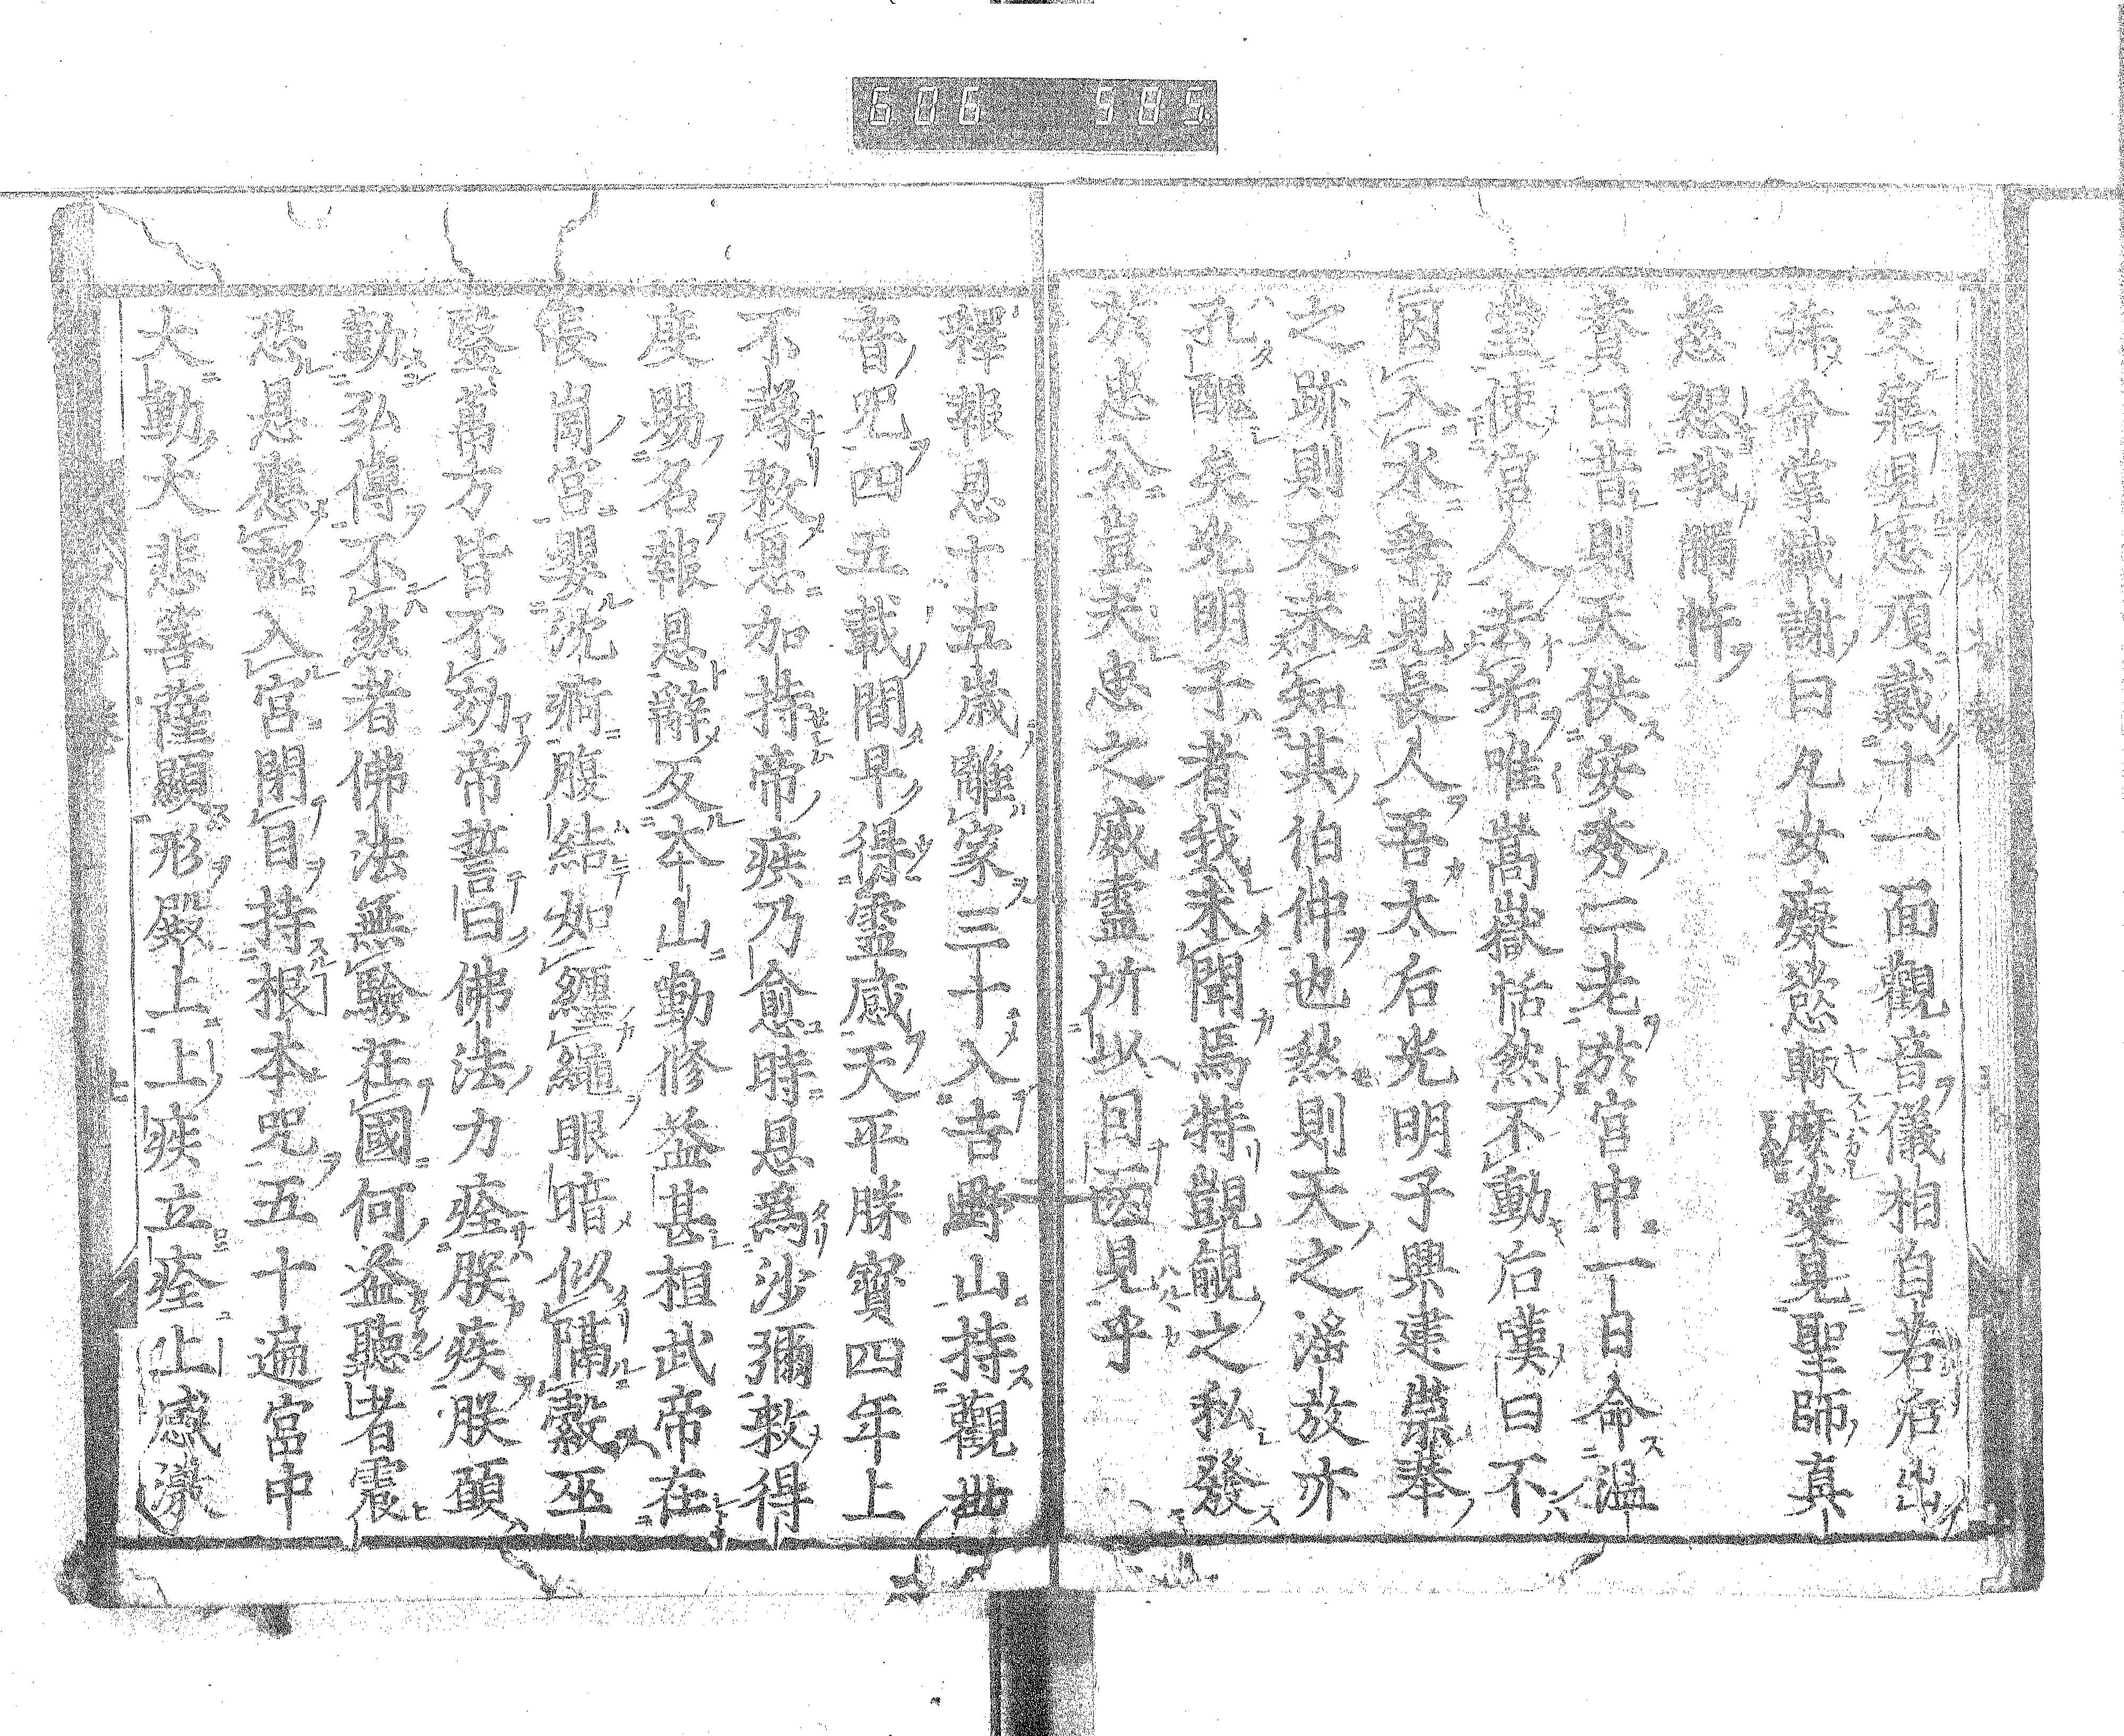 606 585
交寤見忠頂戴十一面觀音儀相自若后出
拜合掌懺謝曰凡女癡慾輙縻愛見聖師真
慈恕我觸忤
賛曰昔則天供安秀二老於宮中一日命温
堂使宮人去垢唯嵩嶽恬然不動后嘆曰不
因入水爭見長人吾太后光明子興建崇奉
之跡則天未知其伯仲也然則天之滛放亦
孔醜矣光明子者我未聞焉特覬覦之私發
於忠公豈天忠之威靈所以回函見乎
釋報恩十五歳離家三十入吉野山持觀世
音咒四五載間早得靈感天平勝寳四年上
不豫敕恩加持帝疾乃愈時恩爲沙彌敕得
度賜名報恩辭反本山勤修益甚桓武帝在
長崗宮嬰沈痾腹結如纒繩眼暗似隔縠巫
毉萬方皆不効帝誓曰佛法力痊朕疾朕頭
勤弘傳不然者佛法無驗在國何益聽者震
恐恩應詔入宮閉目持根本咒五十遍宮中
大動大悲菩薩顯形殿上上疾立痊止感激